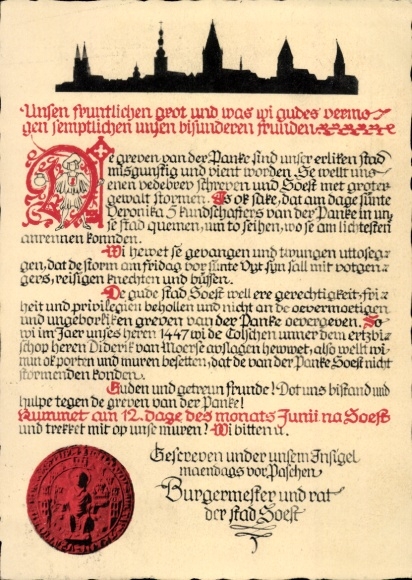 Unsen fruntlichen grot und was wi gudes vermo-
gen semptlichen unsen bisunderen frunden
De greven van der Panke sind unser erliken stad
misgunstig und vient worden. Se wellt uns
enen vedebrev schreven und Soest met groter
gewalt stormen. Is ok sake, dat am dage sunte
Veronika 5 kundschafters van der Panke in un-
se stad quemen, um to seihen, wo se am lichtesten
anrennen konnden.
Wi hewet se gevangen und twungen uttoseg-
gen, dat de storm am fridag vor sunte Vyt syn sall mit votgen-
gers, reisigen knechten und büssen.
De gude stad Soest well ere gerechtigkeit, fri-
heit und privilegien behollen und nicht an de overmoetigen
und ungeborliken greven van der Panke oevergeven. So
wi im Jaer unses heren 1447 wi de Colschen unner dem ertzbi-
schop heren Diderik van Moerse avslagen hewwet, also wellt wi
nun ok porten und muren besetten, dat de van der Panke Soest nicht
stormenden konden.
Guden und getreun frunde! Dot uns bistand und
hulpe tegen de greven van der Panke!
Kummet am 12. dage des monats Junii na Soest
und trekket mit op unse muren! Wi bitten u.
Gescreven under unsem Insigel
maendags vor Paschen
Burgermester und rat
der stad Soest